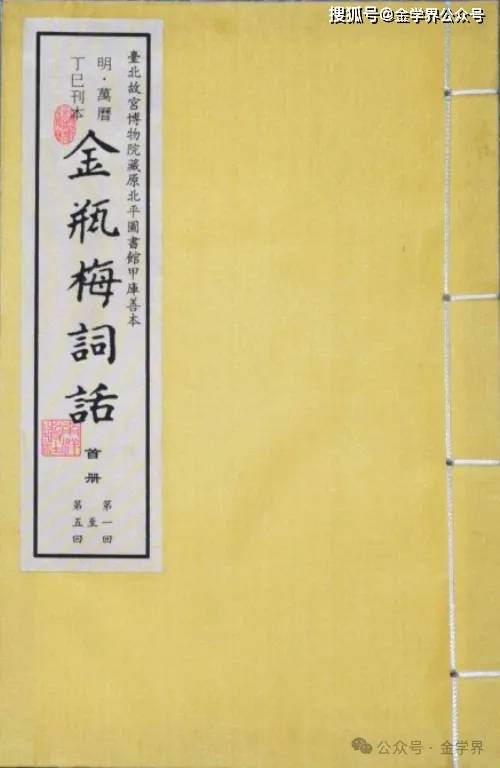 搜狐号@金学界公众号
臺北故宮博物院藏原北平圖書館甲庫善本
明·萬曆
丁巳刊本
金瓶梅詞話
首册
第一回
至
第五回
公众号·金学界